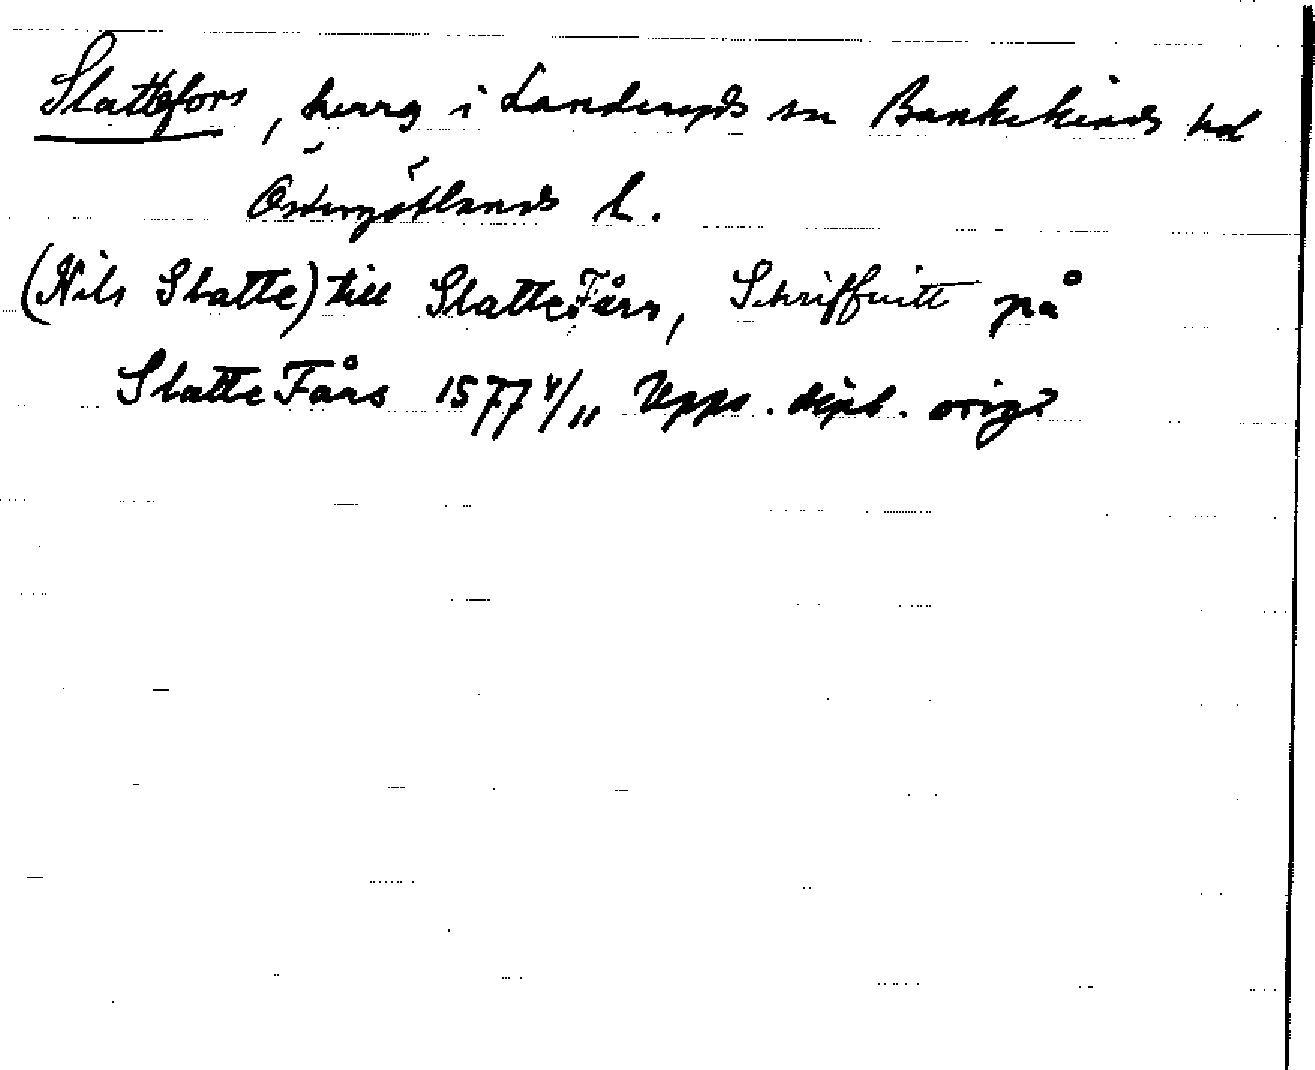 Slattefors, herrg i Landeryds sn Bankekinds hd
Östergötlands l.
(Nils Slatte) till Slatte Fårs, Schriffuitt på
Slatte Fårs 1577 4/11 Upps. dipl. orig.